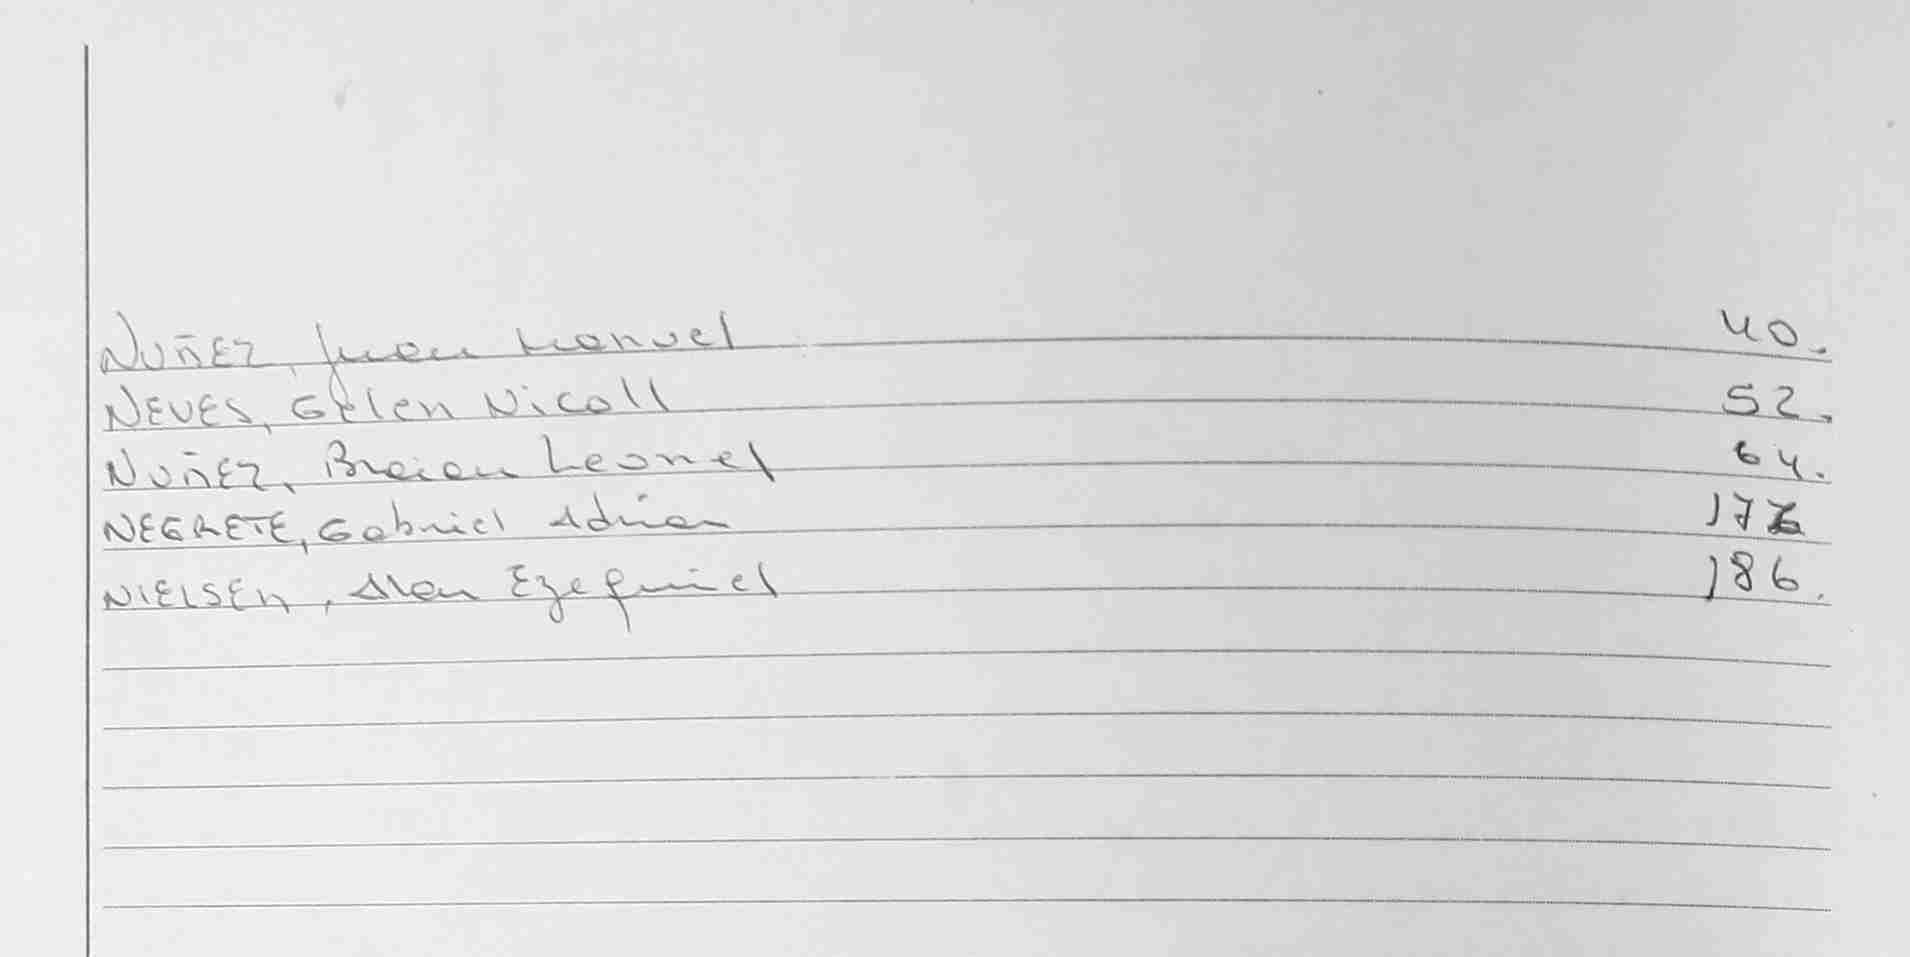 NUÑEZ, Juan Manuel 40.
NEVES, Gelen Nicoll 52.
NUÑEZ, Braian Leonel 64.
NEGRETE, Gabriel Adrian
NIELSEN, Alan Ezequiel 186.